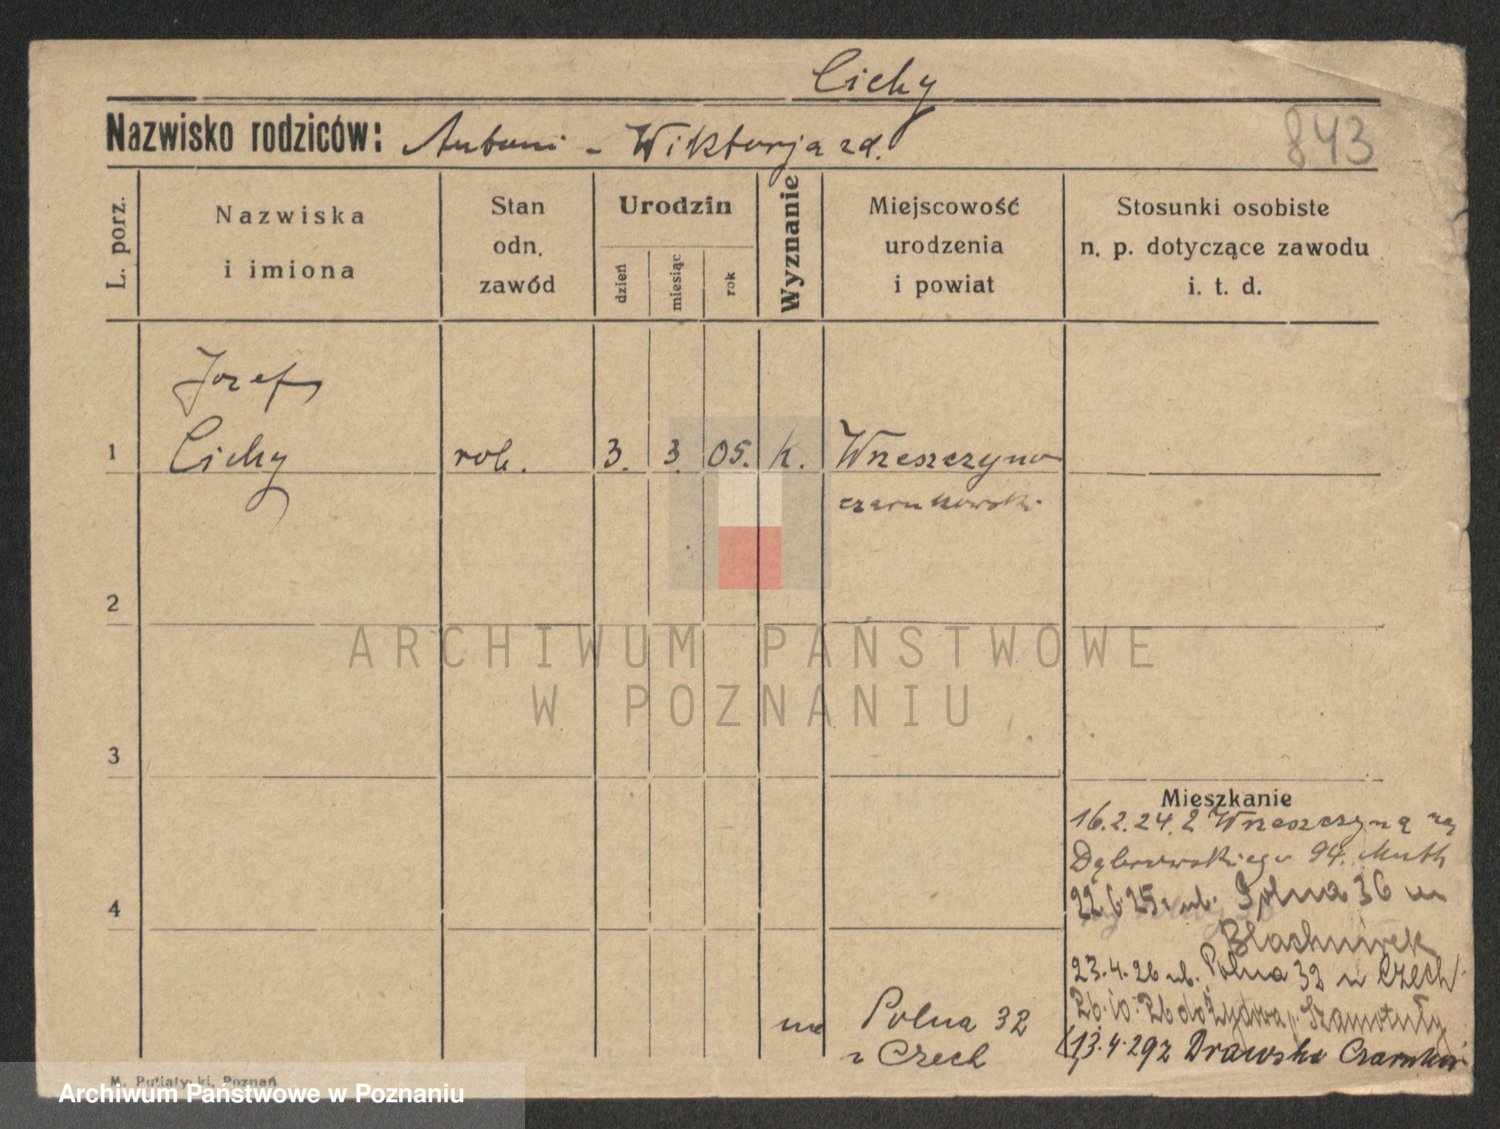 Cichy
Nazwisko rodziców: Antoni - Wiktorja zd.
843
L. porz.
Nazwiska
i imiona
Stan
odn.
zawód
Urodzin
dzień
miesiąc
rok
Wyznanie
Miejscowość
urodzenia
i powiat
Stosunki osobiste
n. p. dotyczące zawodu
i. t. d.
Jozef
1 Cichy rob. 3. 3. 05. k. Wrzeszczyno
czarnkowski
2
ARCHIWUM PAŃSTWOWE
W POZNANIU
3
Mieszkanie
16.2.24. z Wrzeszczyna
Dąbrowskiego 94. Muth
4
22.6.25 ul. Polna 36 u
23.4.26 ul. Polna 32 u Czech
Szamotuły
Polna 32
u Czech
13.4.29 z Drawska
M. Putiatycki, Poznań
Archiwum Państwowe w Poznaniu